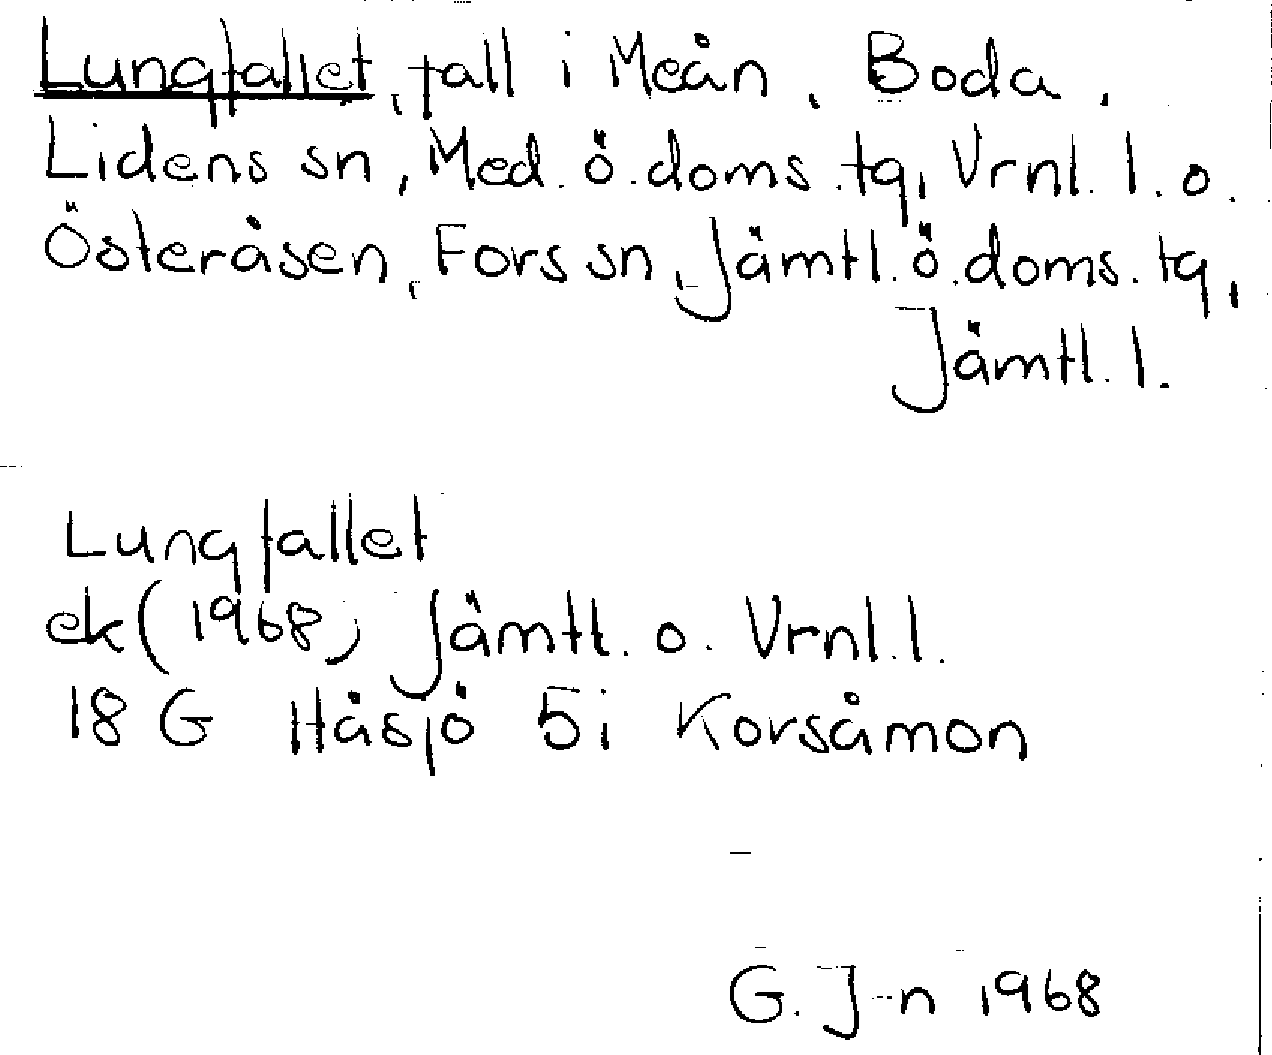 Lungfallet, fall i Meån, Boda,
Lidens sn, Med. ö. doms. tg, Vrnl. l. o.
Österåsen, Fors sn, Jämtl. ö. doms. tg,
Jämtl. l.
Lungfallet
ek (1968) Jämtl. o. Vrnl. l.
18 G Håsjö 5i Korsåmon
G. J-n 1968